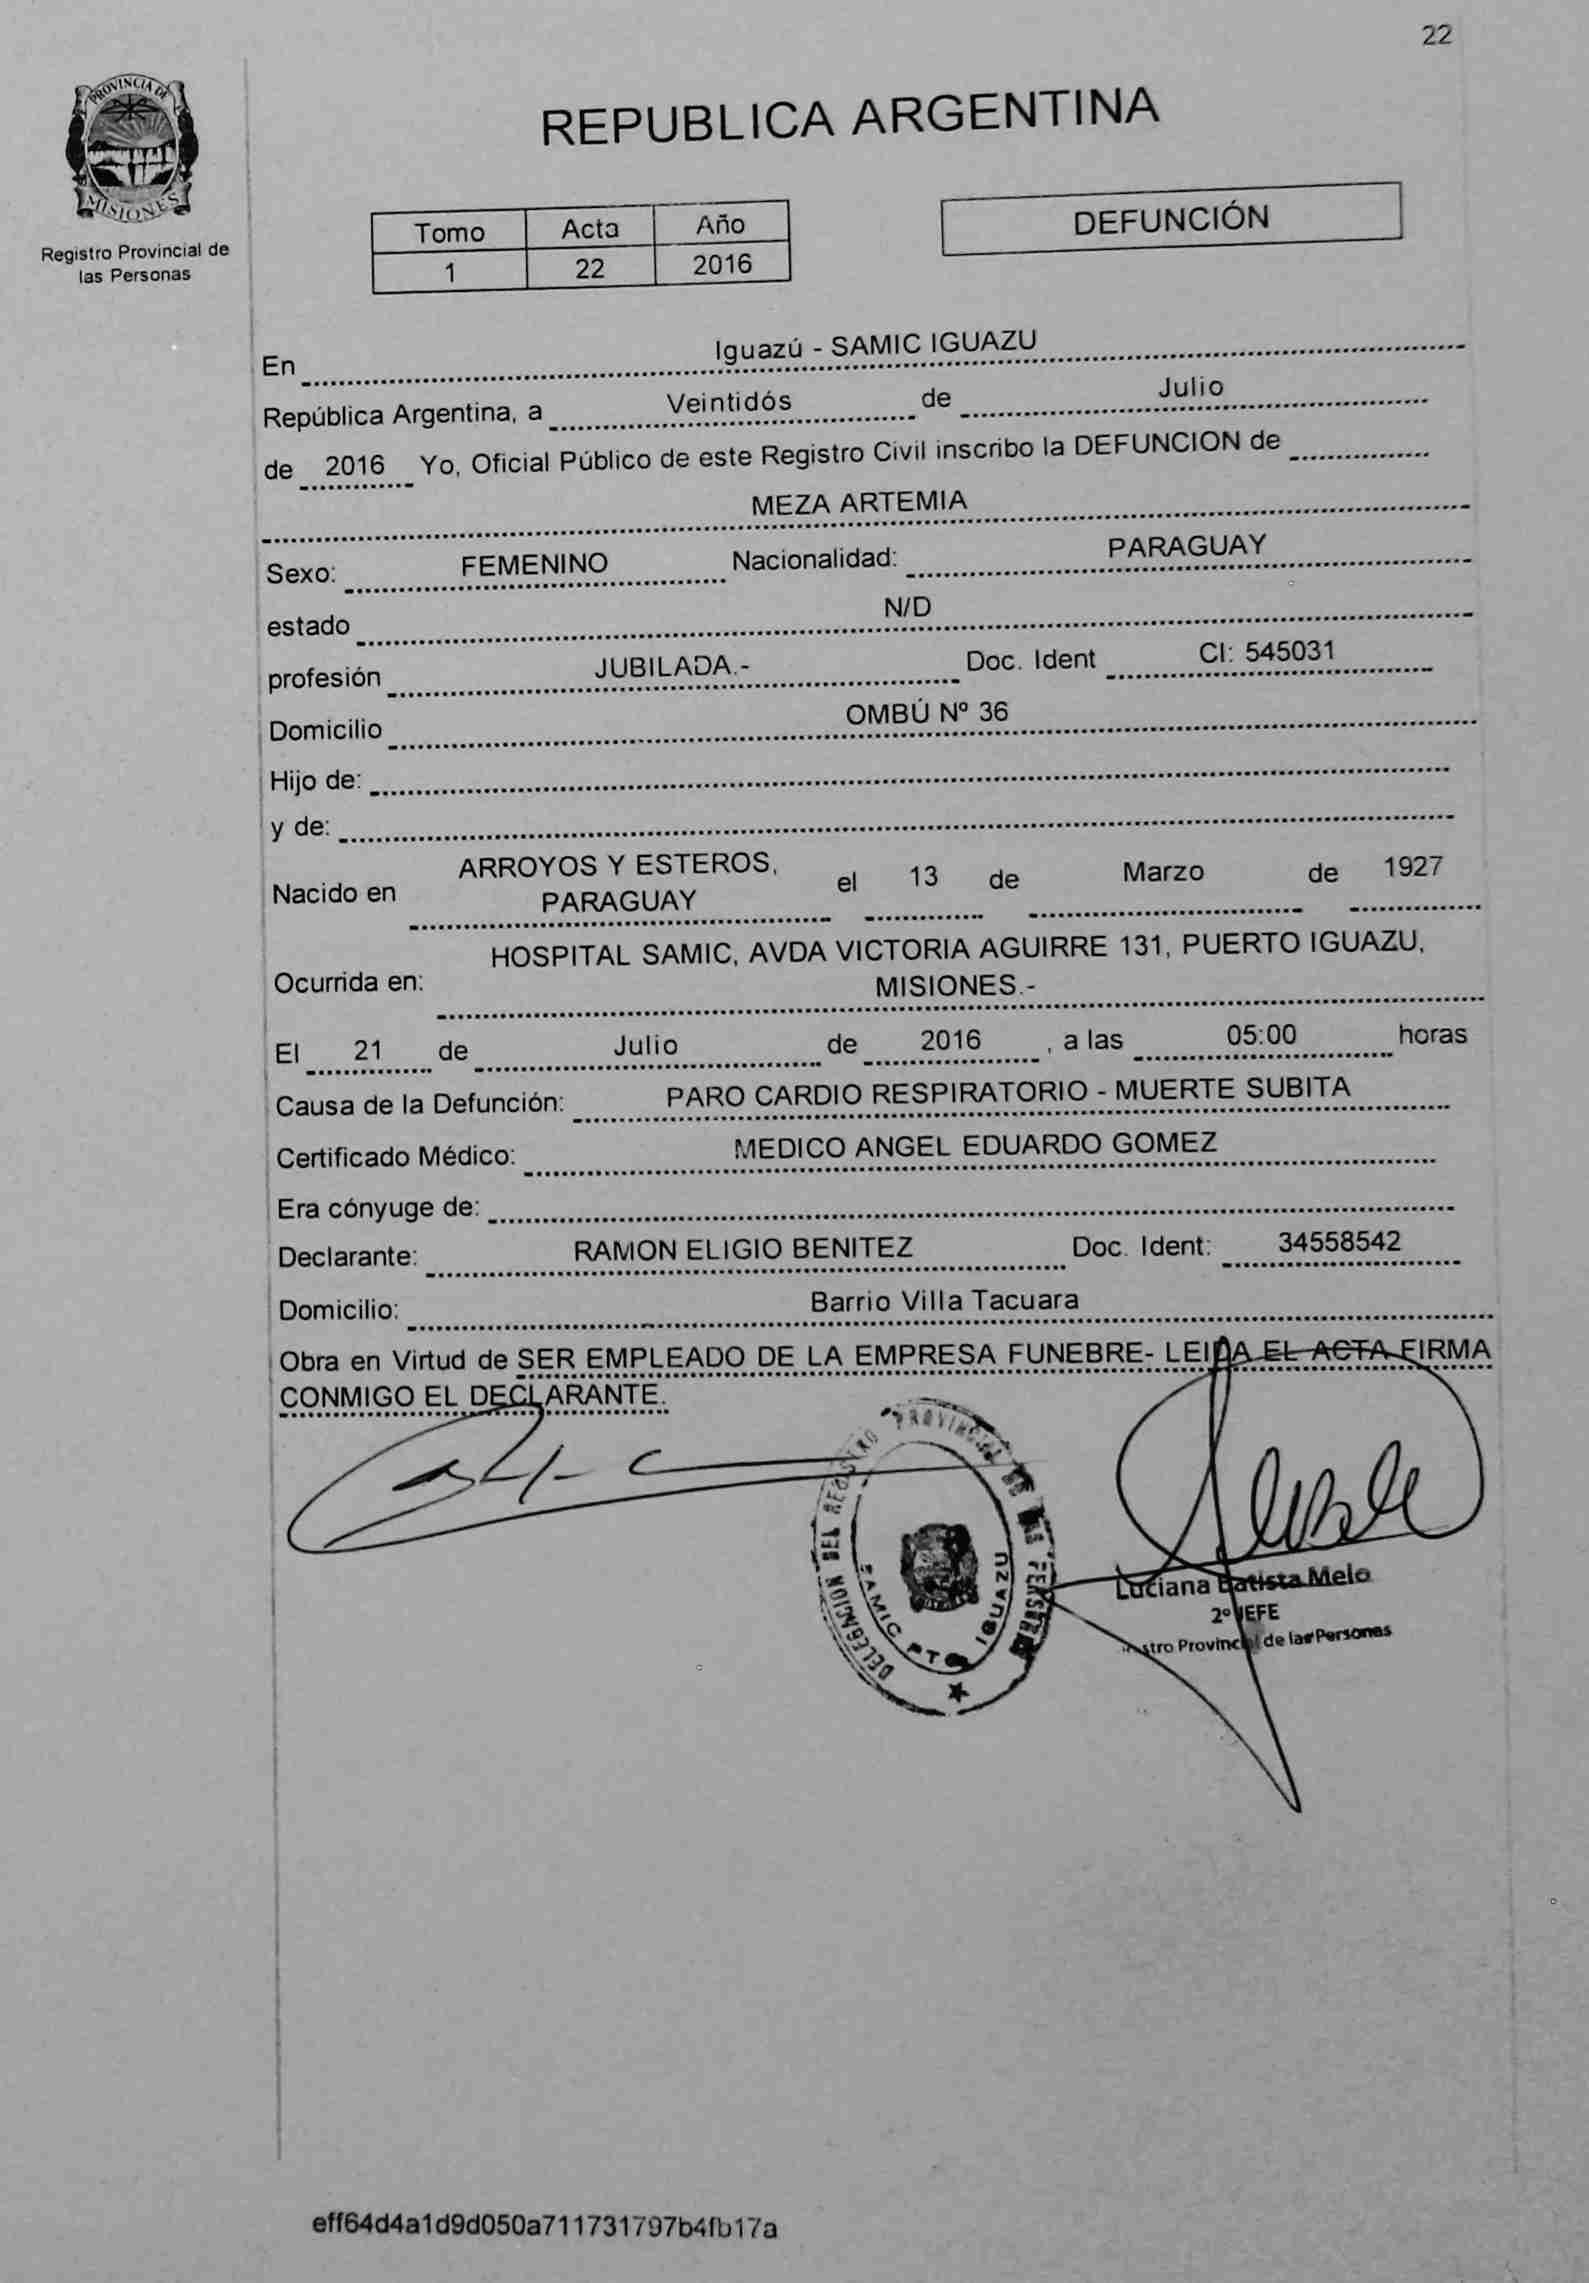 22
PROVINCIA DE
MISIONES
Registro Provincial de
las Personas
REPUBLICA ARGENTINA
Tomo Acta Año
1 22 2016
DEFUNCIÓN
En Iguazú - SAMIC IGUAZU
República Argentina, a Veintidós de Julio
de 2016 Yo, Oficial Público de este Registro Civil inscribo la DEFUNCION de
MEZA ARTEMIA
Sexo: FEMENINO Nacionalidad: PARAGUAY
estado N/D
profesión JUBILADA.- Doc. Ident CI: 545031
Domicilio OMBÚ Nº 36
Hijo de:
y de:
Nacido en ARROYOS Y ESTEROS, PARAGUAY el 13 de Marzo de 1927
Ocurrida en: HOSPITAL SAMIC, AVDA VICTORIA AGUIRRE 131, PUERTO IGUAZU,
MISIONES.-
El 21 de Julio de 2016 , a las 05:00 horas
Causa de la Defunción: PARO CARDIO RESPIRATORIO - MUERTE SUBITA
Certificado Médico: MEDICO ANGEL EDUARDO GOMEZ
Era cónyuge de:
Declarante: RAMON ELIGIO BENITEZ Doc. Ident: 34558542
Domicilio: Barrio Villa Tacuara
Obra en Virtud de SER EMPLEADO DE LA EMPRESA FUNEBRE- LEIDA EL ACTA FIRMA
CONMIGO EL DECLARANTE.
DELEGACION DEL REGISTRO PROVINCIAL DE LAS PERSONAS
SAMIC PTO IGUAZU
Luciana Batista Melo
2º JEFE
Provincial de las Personas
eff64d4a1d9d050a711731797b4fb17a